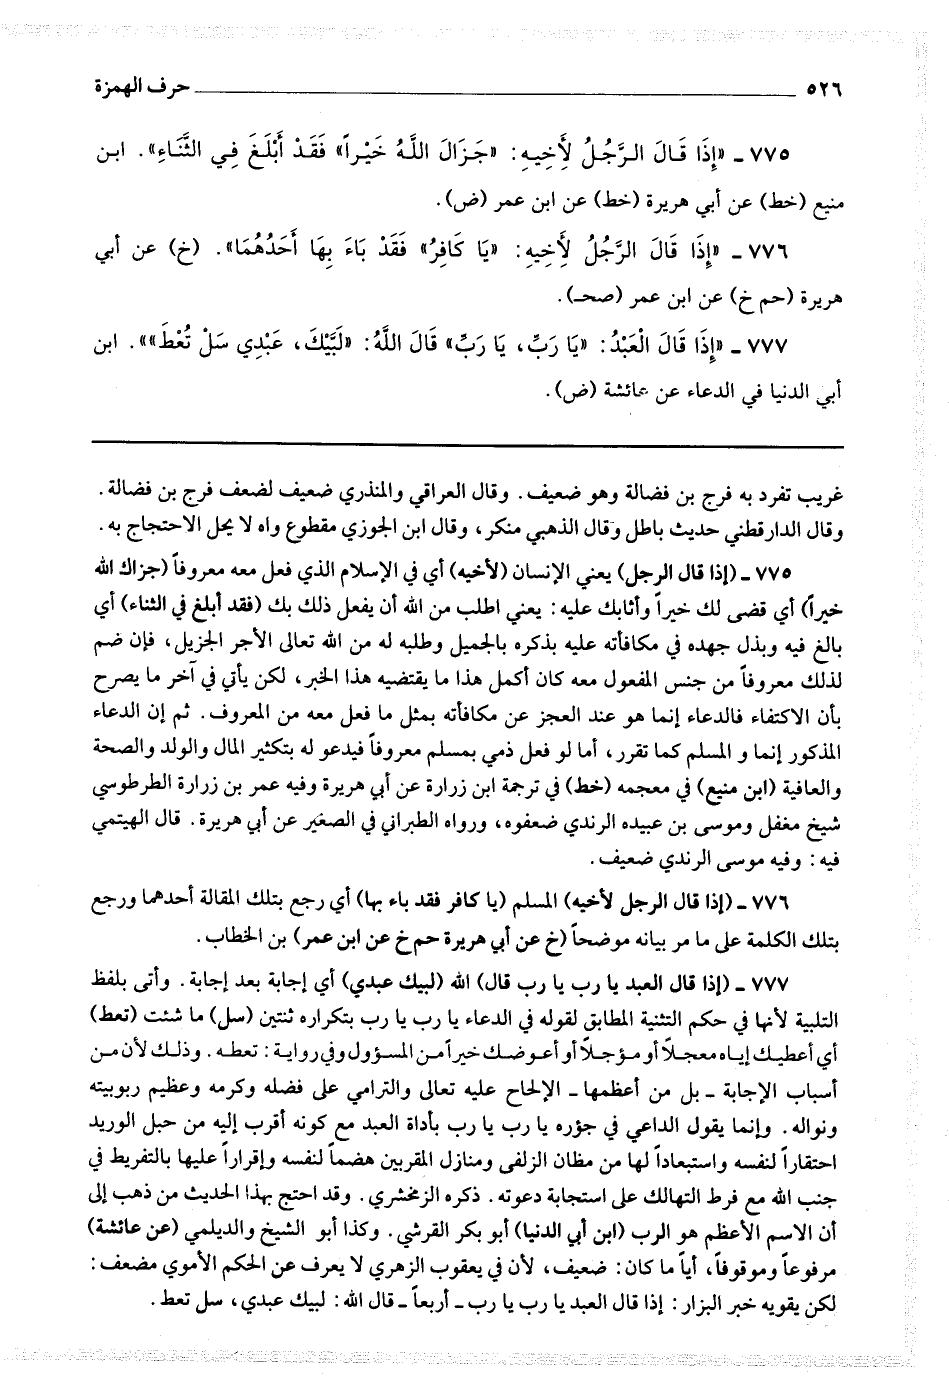 ٥٢٦ حرف الهمزة
٧٧٥ ـ «إِذَا قَالَ الرَّجُلُ لِأَخِيهِ: «جَزَالَ اللَّهُ خَيْراً» فَقَدْ أَبْلَغَ فِي الثَّنَاءِ». ابن
منيع (خط) عن أبي هريرة (خط) عن ابن عمر (ض).
٧٧٦ ـ «إِذَا قَالَ الرَّجُلُ لِأَخِيهِ: «يَا كَافِرُ» فَقَدْ بَاءَ بِهَا أَحَدُهُمَا». (خ) عن أبي
هريرة (حم خ) عن ابن عمر (صحـ).
٧٧٧ ـ «إِذَا قَالَ الْعَبْدُ: «يَا رَبِّ، يَا رَبِّ» قَالَ اللَّهُ: «لَبَّيْكَ، عَبْدِي سَلْ تُعْطَ»». ابن
أبي الدنيا في الدعاء عن عائشة (ض).
غريب تفرد به فرج بن فضالة وهو ضعيف. وقال العراقي والمنذري ضعيف لضعف فرج بن فضالة.
وقال الدارقطني حديث باطل وقال الذهبي منكر، وقال ابن الجوزي مقطوع واه لا يحل الاحتجاج به.
٧٧٥ ـ (إذا قال الرجل) يعني الإنسان (لأخيه) أي في الإسلام الذي فعل معه معروفاً (جزاك الله
خيراً) أي قضى لك خيراً وأثابك عليه: يعني اطلب من الله أن يفعل ذلك بك (فقد أبلغ في الثناء) أي
بالغ فيه وبذل جهده في مكافأته عليه بذكره بالجميل وطلبه له من الله تعالى الأجر الجزيل، فإن ضم
لذلك معروفاً من جنس المفعول معه كان أكمل هذا ما يقتضيه هذا الخبر، لكن يأتي في آخر ما يصرح
بأن الاكتفاء فالدعاء إنما هو عند العجز عن مكافأته بمثل ما فعل معه من المعروف. ثم إن الدعاء
المذكور إنما و المسلم كما تقرر، أما لو فعل ذمي بمسلم معروفاً فيدعو له بتكثير المال والولد والصحة
والعافية (ابن منيع) في معجمه (خط) في ترجمة ابن زرارة عن أبي هريرة وفيه عمر بن زرارة الطرطوسي
شيخ مغفل وموسى بن عبيده الرندي ضعفوه، ورواه الطبراني في الصغير عن أبي هريرة. قال الهيتمي
فيه: وفيه موسى الرندي ضعيف.
٧٧٦ ـ (إذا قال الرجل لأخيه) المسلم (يا كافر فقد باء بها) أي رجع بتلك المقالة أحدهما ورجع
بتلك الكلمة على ما مر بيانه موضحاً (خ عن أبي هريرة حم خ عن ابن عمر) بن الخطاب.
٧٧٧ ـ (إذا قال العبد يا رب يا رب قال) الله (لبيك عبدي) أي إجابة بعد إجابة. وأتى بلفظ
التلبية لأنها في حكم التثنية المطابق لقوله في الدعاء يا رب يا رب بتكراره ثنتين (سل) ما شئت (تعط)
أي أعطيك إياه معجلاً أو مؤجلاً أو أعوضك خيراً من المسؤول وفي رواية: تعطه. وذلك لأن من
أسباب الإجابة ـ بل من أعظمها ـ الإلحاح عليه تعالى والترامي على فضله وكرمه وعظيم ربوبيته
ونواله. وإنما يقول الداعي في جؤره يا رب يا رب بأداة العبد مع كونه أقرب إليه من حبل الوريد
احتقاراً لنفسه واستبعاداً لها من مظان الزلفى ومنازل المقربين هضماً لنفسه وإقراراً عليها بالتفريط في
جنب الله مع فرط التهالك على استجابة دعوته. ذكره الزمخشري. وقد احتج بهذا الحديث من ذهب إلى
أن الاسم الأعظم هو الرب (ابن أبي الدنيا) أبو بكر القرشي. وكذا أبو الشيخ والديلمي (عن عائشة)
مرفوعاً وموقوفاً، أياً ما كان: ضعيف، لأن في يعقوب الزهري لا يعرف عن الحكم الأموي مضعف:
لكن يقويه خبر البزار: إذا قال العبد يا رب يا رب ـ أربعاً ـ قال الله: لبيك عبدي، سل تعط.